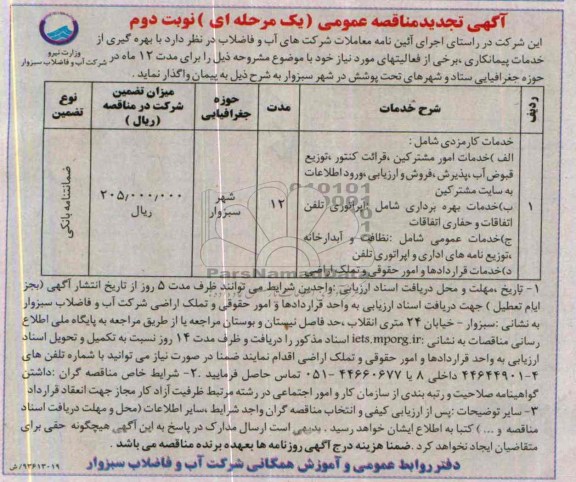 آگهی تجدیدمناقصه عمومی (یک مرحله ای ) نوبت دوم
وزارت نیرو
شرکت آب و فاضلاب سبزوار
این شرکت در راستای اجرای آئین نامه معاملات شرکت های آب و فاضلاب در نظر دارد با بهره گیری از
خدمات پیمانکاری ،برخی از فعالیتهای مورد نیاز خود با موضوع مشروحه ذیل را برای مدت ۱۲ ماه در
حوزه جغرافیایی ستاد و شهرهای تحت پوشش در شهر سبزوار به شرح ذیل به پیمان واگذار نماید .
ردیف
شرح خدمات
مدت
حوزه جغرافیایی
میزان تضمین شرکت در مناقصه (ریال )
نوع تضمین
۱
خدمات کارمزدی شامل :
الف )خدمات امور مشترکین ،قرائت کنتور ،توزیع
قبوض آب ،پذیرش ،فروش و ارزیابی ،ورود اطلاعات
به سایت مشترکین
ب)خدمات بهره برداری شامل :اپراتوری تلفن
اتفاقات و حفاری اتفاقات
ج)خدمات عمومی شامل :نظافت و آبدارخانه
،توزیع نامه های اداری و اپراتوری تلفن
د)خدمات قراردادها و امور حقوقی و تملک اراضی
۱۲
شهر سبزوار
۲۰۵٫۰۰۰٫۰۰۰ ریال
ضمانتنامه بانکی
۱- تاریخ ،مهلت و محل دریافت اسناد ارزیابی :واجدین شرایط می توانند ظرف مدت ۵ روز از تاریخ انتشار آگهی (بجز
ایام تعطیل ) جهت دریافت اسناد ارزیابی به واحد قراردادها و امور حقوقی و تملک اراضی شرکت آب و فاضلاب سبزوار
به نشانی :سبزوار - خیابان ۲۴ متری انقلاب ،حد فاصل نیستان و بوستان مراجعه یا از طریق مراجعه به پایگاه ملی اطلاع
رسانی مناقصات به نشانی :iets.mporg.ir اسناد مذکور را دریافت و ظرف مدت ۱۴ روز نسبت به تکمیل و تحویل اسناد
ارزیابی به واحد قراردادها و امور حقوقی و تملک اراضی اقدام نمایند ضمنا در صورت نیاز می توانید با شماره تلفن های
۴-۴۴۶۴۴۹۰۱ داخلی ۸ یا ۴۴۶۶۰۶۷۷ -۰۵۱ تماس حاصل فرمایید .۲- شرایط خاص مناقصه گران :داشتن
گواهینامه صلاحیت و رتبه بندی از سازمان کار و امور اجتماعی در رشته مرتبط ظرفیت آزاد کار مجاز جهت انعقاد قرارداد
۳- سایر توضیحات :پس از ارزیابی کیفی و انتخاب مناقصه گران واجد شرایط ،سایر اطلاعات (محل و مهلت دریافت اسناد
مناقصه و ... ) کتبا به اطلاع ایشان خواهد رسید . بدیهی است ارسال مدارک در پاسخ به این آگهی هیچگونه حقی برای
متقاضیان ایجاد نخواهد کرد .ضمنا هزینه درج آگهی روزنامه ها بعهده برنده مناقصه می باشد .
دفتر روابط عمومی و آموزش همگانی شرکت آب و فاضلاب سبزوار
۹۳۶۱۳۰۱۹/ش